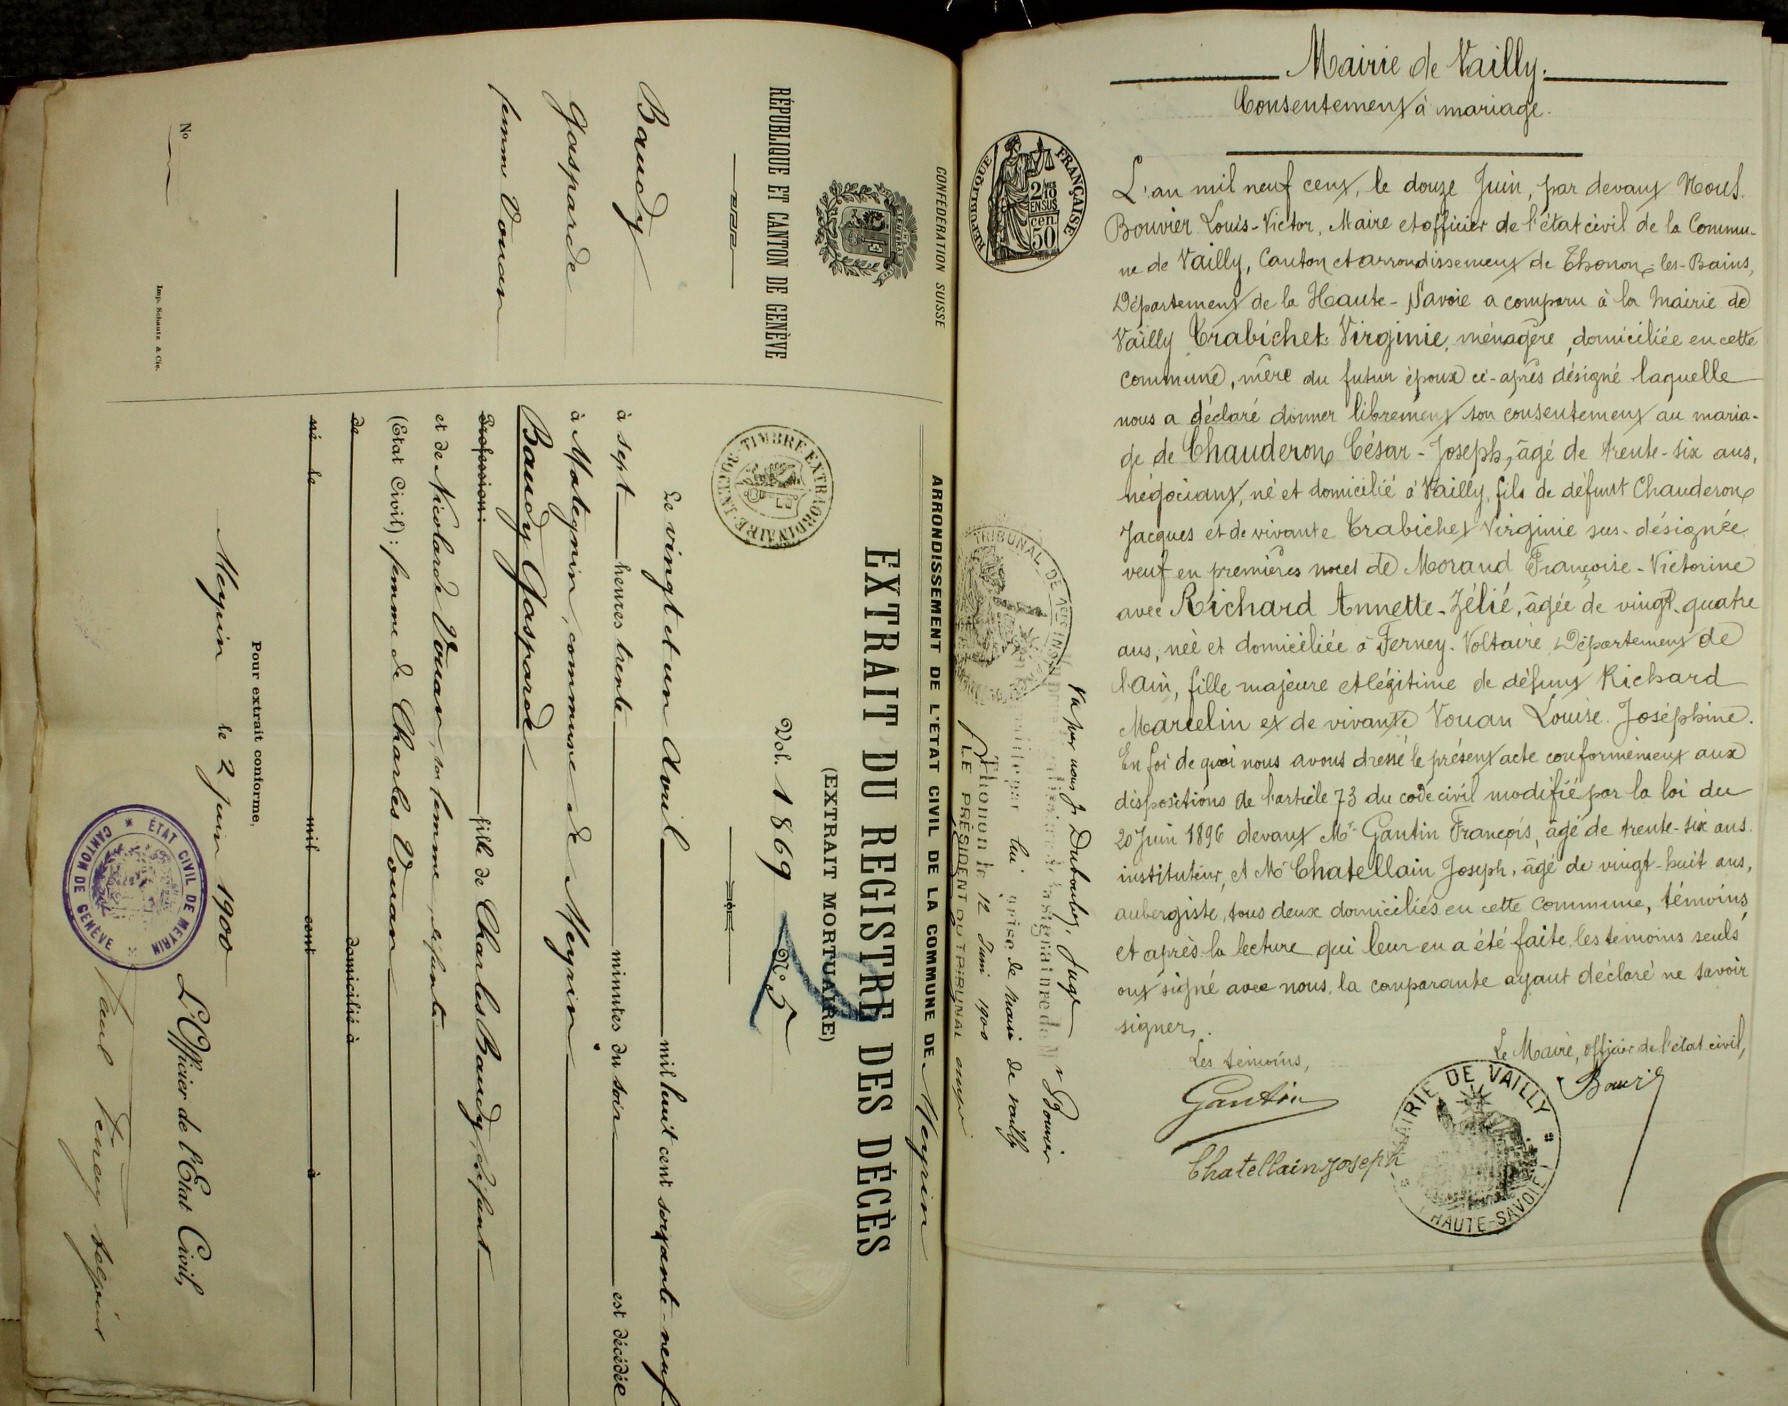 CONFÉDÉRATION SUISSE
RÉPUBLIQUE ET CANTON DE GENÈVE
Baudy
Gasparde
femme Vouan
No
Imp. Schautz & Cie.
ARRONDISSEMENT DE L'ÉTAT CIVIL DE LA COMMUNE DE Meyrin
EXTRAIT DU REGISTRE DES DÉCÈS
(EXTRAIT MORTUAIRE)
Vol. 1869 No 5
TIMBRE EXTRAORDINAIRE
Le vingt et un Avril mil huit cent soixante-neuf
à sept heures trente minutes du soir est décédée
à Mategnin, commune de Meyrin
Baudy Gasparde
Profession:
fille de Charles Baudy, défunt
et de Nicolarde Vouan, sa femme, défunte
(Etat Civil): femme de Charles Vouan
de domicilié à
né le mil cent à
Pour extrait conforme,
Meyrin le 2 Juin 1900
L'Officier de l'Etat Civil,
ÉTAT CIVIL DE MEYRIN
CANTON DE GENÈVE
Mairie de Vailly.
Consentement à mariage.
RÉPUBLIQUE FRANÇAISE
2/10 EN SUS
cen 50
L'an mil neuf cent, le douze Juin, par devant Nous.
Bouvier Louis-Victor, Maire et officier de l'état civil de la Commu-
ne de Vailly, Canton et arrondissement de Thonon-les-Bains,
Département de la Haute-Savoie a comparu à la Mairie de
Vailly Trabichet Virginie, ménagère, domiciliée en cette
commune, mère du futur époux ci-après désigné laquelle
nous a déclaré donner librement son consentement au maria-
ge de Chauderon César-Joseph, âgé de trente-six ans,
négociant, né et domicilié à Vailly, fils de défunt Chauderon
Jacques et de vivante Trabichet Virginie sus-désignée
veuf en premières noces de Morand Françoise-Victorine
avec Richard Annette-Zélié, âgée de vingt-quatre
ans, née et domiciliée à Ferney-Voltaire Département de
l'ain, fille majeure et légitime de défunt Richard
Marcelin et de vivante Vouan Louise Joséphine.
En foi de quoi nous avons dressé le présent acte conformément aux
dispositions de l'article 73 du code civil modifié par la loi du
20 Juin 1896 devant Mr Gantin François, âgé de trente-six ans
instituteur, et Mr Chatellain Joseph, âgé de vingt-huit ans,
aubergiste, tous deux domiciliés en cette commune, témoins
et après la lecture qui leur en a été faite les témoins seuls
ont signé avec nous, la comparante ayant déclaré ne savoir
signer.
Les témoins,
Le Maire, officier de l'état civil,
Gantin
Chatellain Joseph
MAIRIE DE VAILLY
HAUTE-SAVOIE
TRIBUNAL DE 1ère INST
Vu par nous Juge
la signature de Mr Bouvier
maire de vailly
Thonon le 12 Juin 1900
LE PRÉSIDENT DU TRIBUNAL